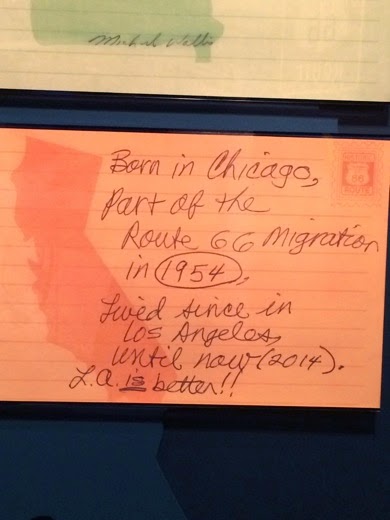 Michael Wallis
Born in Chicago,
Part of the
Route 66 Migration
in 1954,
Lived since in
Los Angeles,
until now (2014).
L.A. is better!!
66
ROUTE